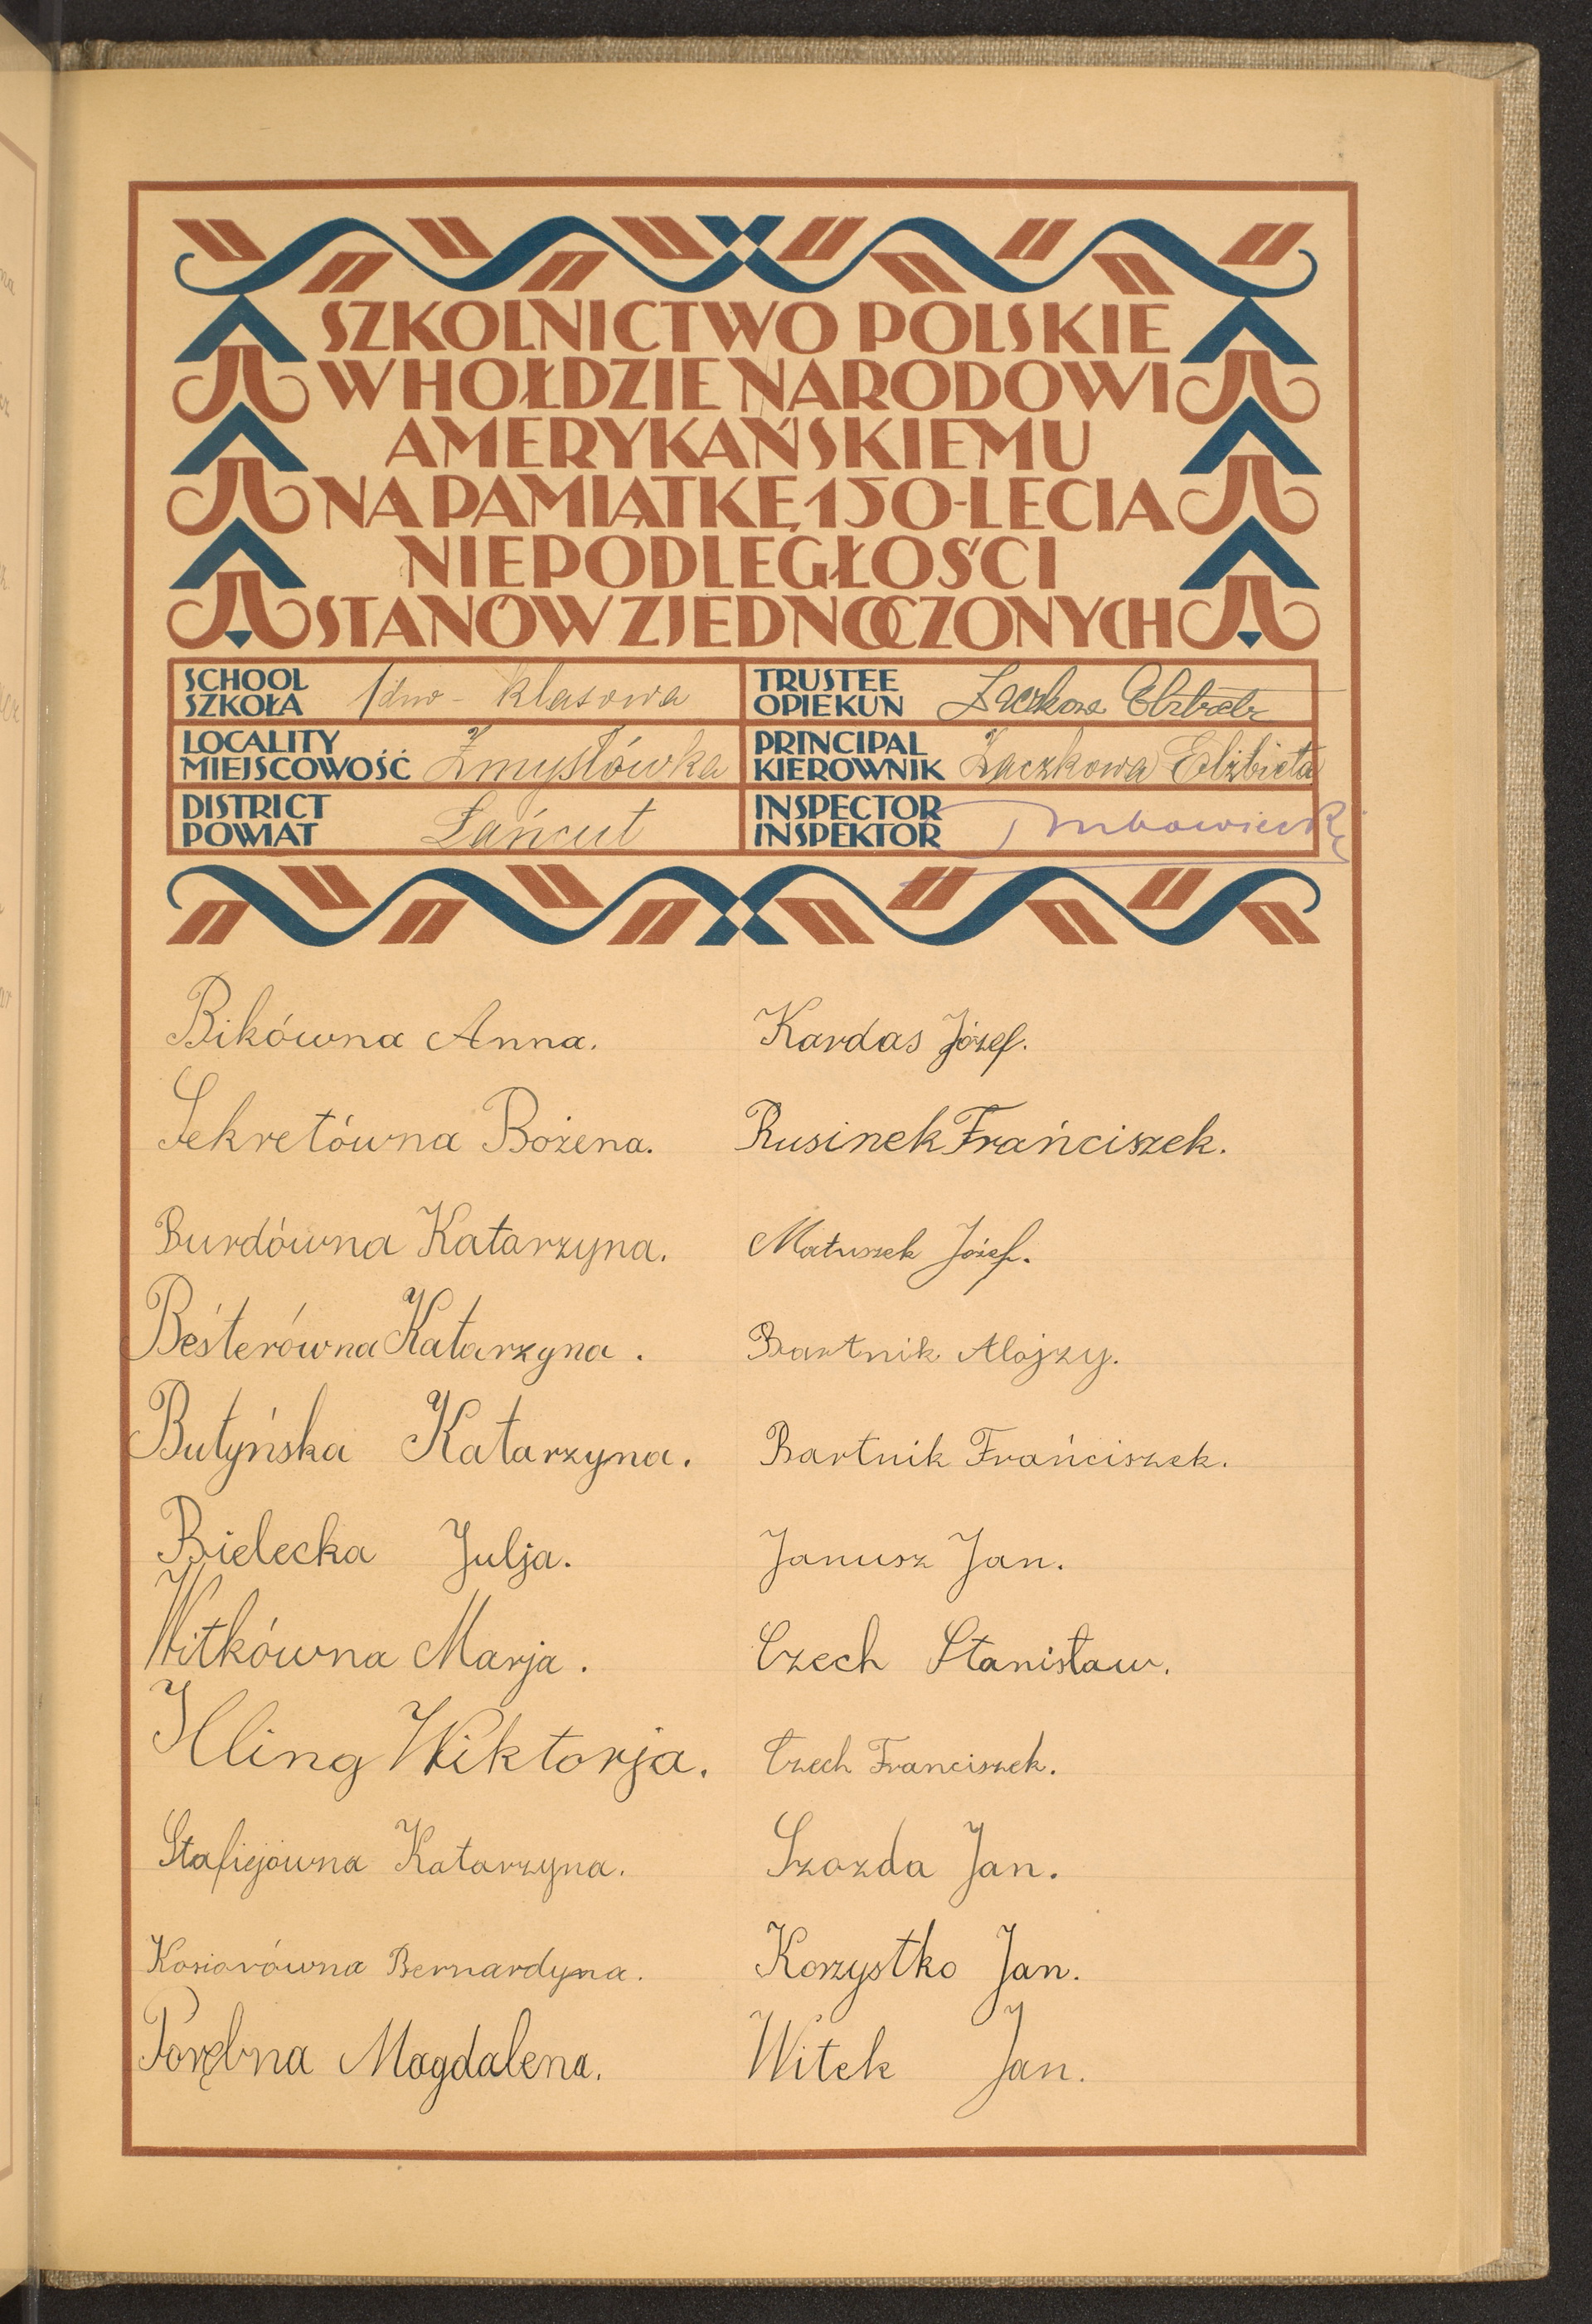 SZKOLNICTWO POLSKIE
W HOŁDZIE NARODOWI
AMERYKAŃSKIEMU
NA PAMIĄTKĘ 150-LECIA
NIEPODLEGŁOŚCI
STANÓW ZJEDNOCZONYCH
SCHOOL
SZKOŁA
1dno - klasowa
TRUSTEE
OPIEKUN
LOCALITY
MIEJSCOWOŚĆ
Zmysłówka
PRINCIPAL
KIEROWNIK
Żaczkowa Elżbieta
DISTRICT
POWIAT
Łańcut
INSPECTOR
INSPEKTOR
Bikówna Anna.
Sekretówna Bożena.
Burdówna Katarzyna.
Beśterówna Katarzyna.
Butyńska Katarzyna.
Bielecka Julja.
Witkówna Marja.
Illing Wiktorja.
Stafiejówna Katarzyna.
Kosiorówna Bernardyna.
Porębna Magdalena.
Kardas Józef.
Rusinek Frańciszek.
Matuszek Józef.
Bartnik Alojzy.
Bartnik Frańciszek.
Janusz Jan.
Czech Stanisław.
Czech Franciszek.
Szozda Jan.
Korzystko Jan.
Witek Jan.